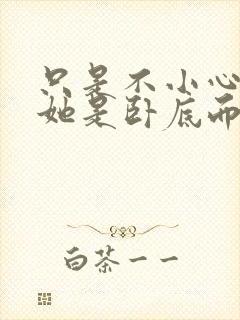 只是不小心
她是卧底而
白茶一一